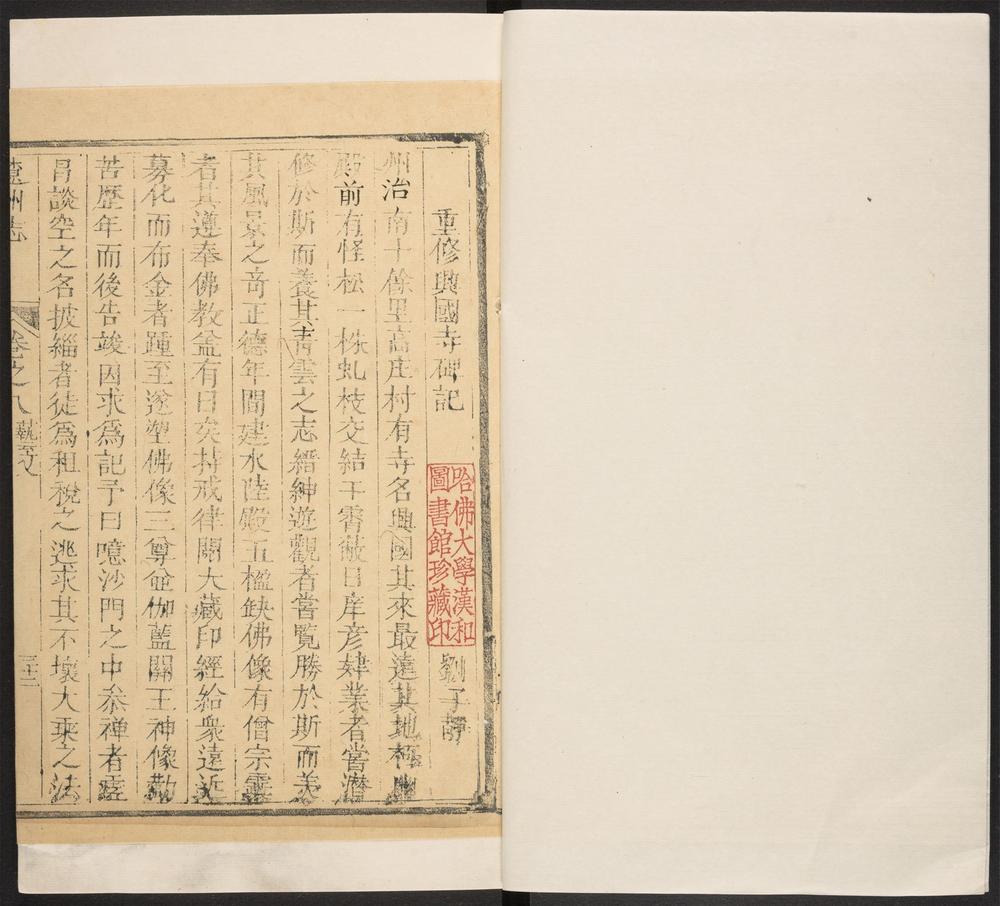 重修興國寺碑記
劉子靜
哈佛大學漢和
圖書館珍藏印
州治南十餘里高庄村有寺名興國其來最遠其地極幽
殿前有怪松一株虬枝交結干霄蔽日庠彦肄業者嘗潛
修於斯而養其青雲之志縉紳遊觀者嘗覧勝於斯而美
其風景之奇正德年間建水陸殿五楹缺佛像有僧宗靈
者其遵奉佛教盖有日矣持戒律關大藏印經給衆遠近
募化而布金者踵至遂塑佛像三尊並伽藍關王神像勸
苦歷年而後告竣因求為記予曰噫沙門之中叅禅者
冐談空之名披緇者徒為租稅之逃求其不壞大乘之法
遼州志
卷之八
藝文
三十二